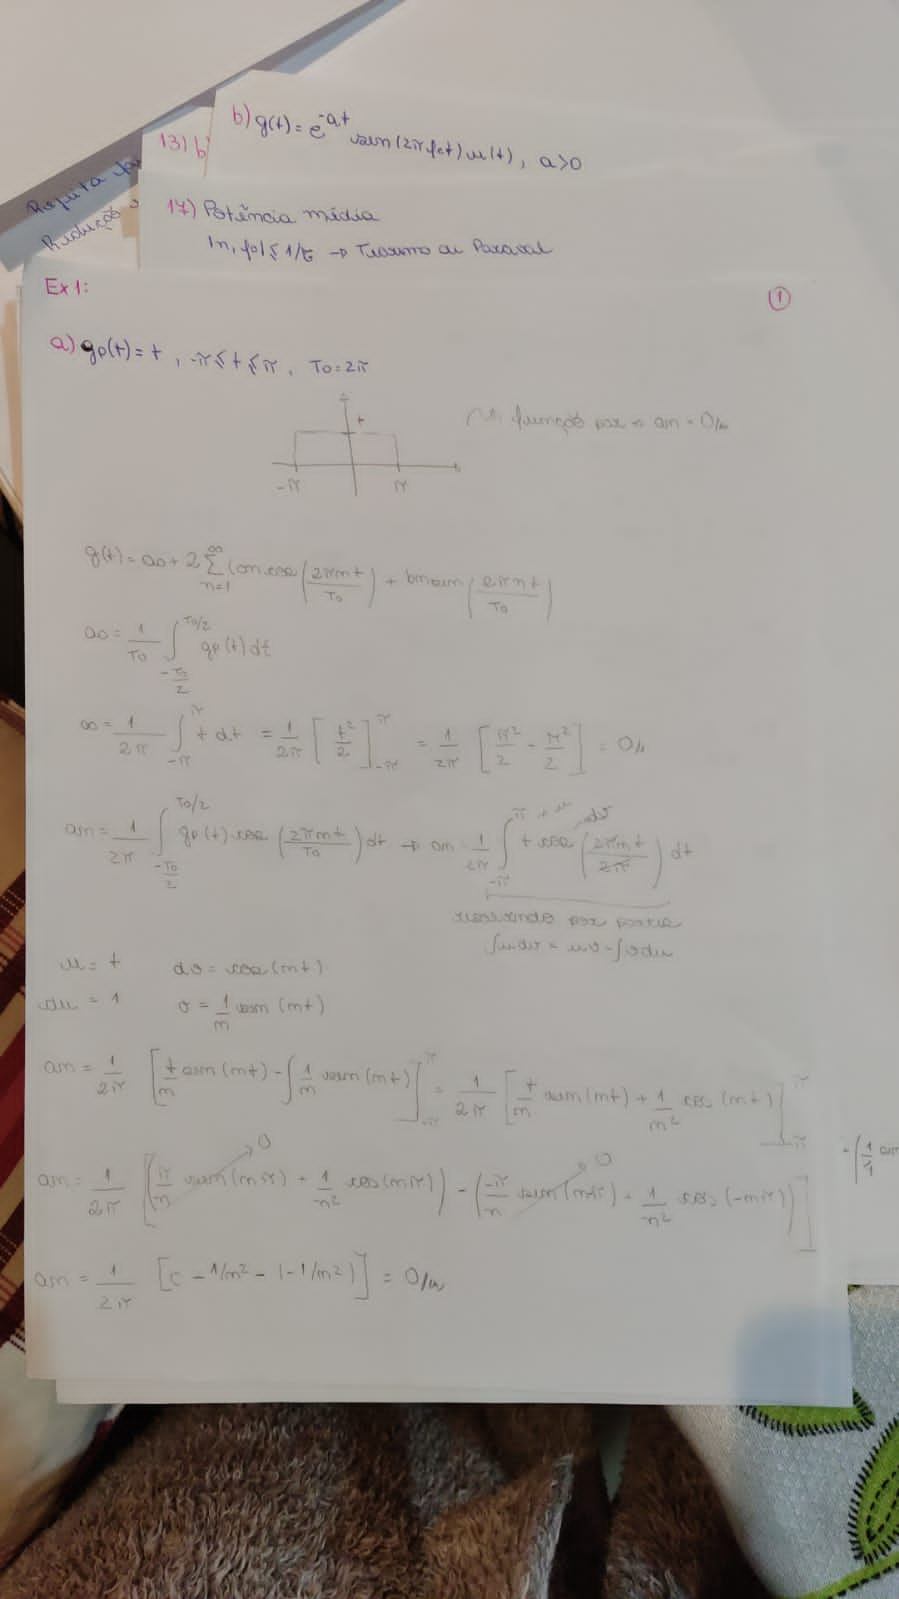 b) g(t) = e^-at sen(2πfct)u(t), a>0
13) b)
17) Potência média
|n, fo| ≤ 1/τ → Teorema de Parseval
Redução
Ex1:
1
a) gp(t) = t, -π ≤ t ≤ π, To = 2π
t
função par = an = 0//
-π π
g(t) = ao + 2 ∞Σn=1 (an cos (2πnt/To) + bn sen (2πnt/To)
ao = 1/To ∫-To/2^To/2 gp(t)dt
ao = 1/2π ∫-π^π t dt = 1/2π [t²/2]-π^π = 1/2π [π²/2 - π²/2] = 0//
an = 1/2π ∫-To/2^To/2 gp(t) cos (2πnt/To) dt → an = 1/2π ∫-π^π t cos (2πnt/2π) dt
u dv
resolvendo por partes
∫udv = uv - ∫vdu
u = t dv = cos(nt)
du = 1 v = 1/n sen(nt)
an = 1/2π [t/n sen(nt) - ∫1/n sen(nt)]-π^π = 1/2π [t/n sen(nt) + 1/n² cos(nt)]-π^π
an = 1/2π [(π/n sen(nπ) + 1/n² cos(nπ)) - (-π/n sen(nπ) + 1/n² cos(-nπ))]
0 0
an = 1/2π [ - 1/n² - (-1/n²)] = 0//